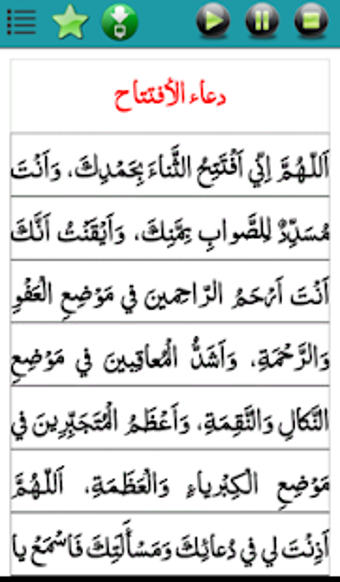 دعاء الأفتتاح
اَللّهُمَّ اِنّي اَفْتَتِحُ الثَّناءَ بِحَمْدِكَ، وَاَنْتَ
مُسَدِّدٌ لِلصَّوابِ بِمَّنِكَ، وَاَيْقَنْتُ اَنَّكَ
اَنْتَ اَرْحَمُ الرّاحِمينَ في مَوْضِعِ الْعَفْوِ
وَالرَّحْمَةِ، وَاَشَدُّ الْمُعاقِبينَ في مَوْضِعِ
النَّكالِ وَالنَّقِمَةِ، وَاَعْظَمُ الْمُتَجَبِّرِينَ في
مَوْضِعِ الْكِبْرياءِ وَالْعَظَمَةِ، اَللّهُمَّ
اَذِنْتَ لي في دُعائِكَ وَمَسْأَلَتِكَ فَاسْمَعْ يا